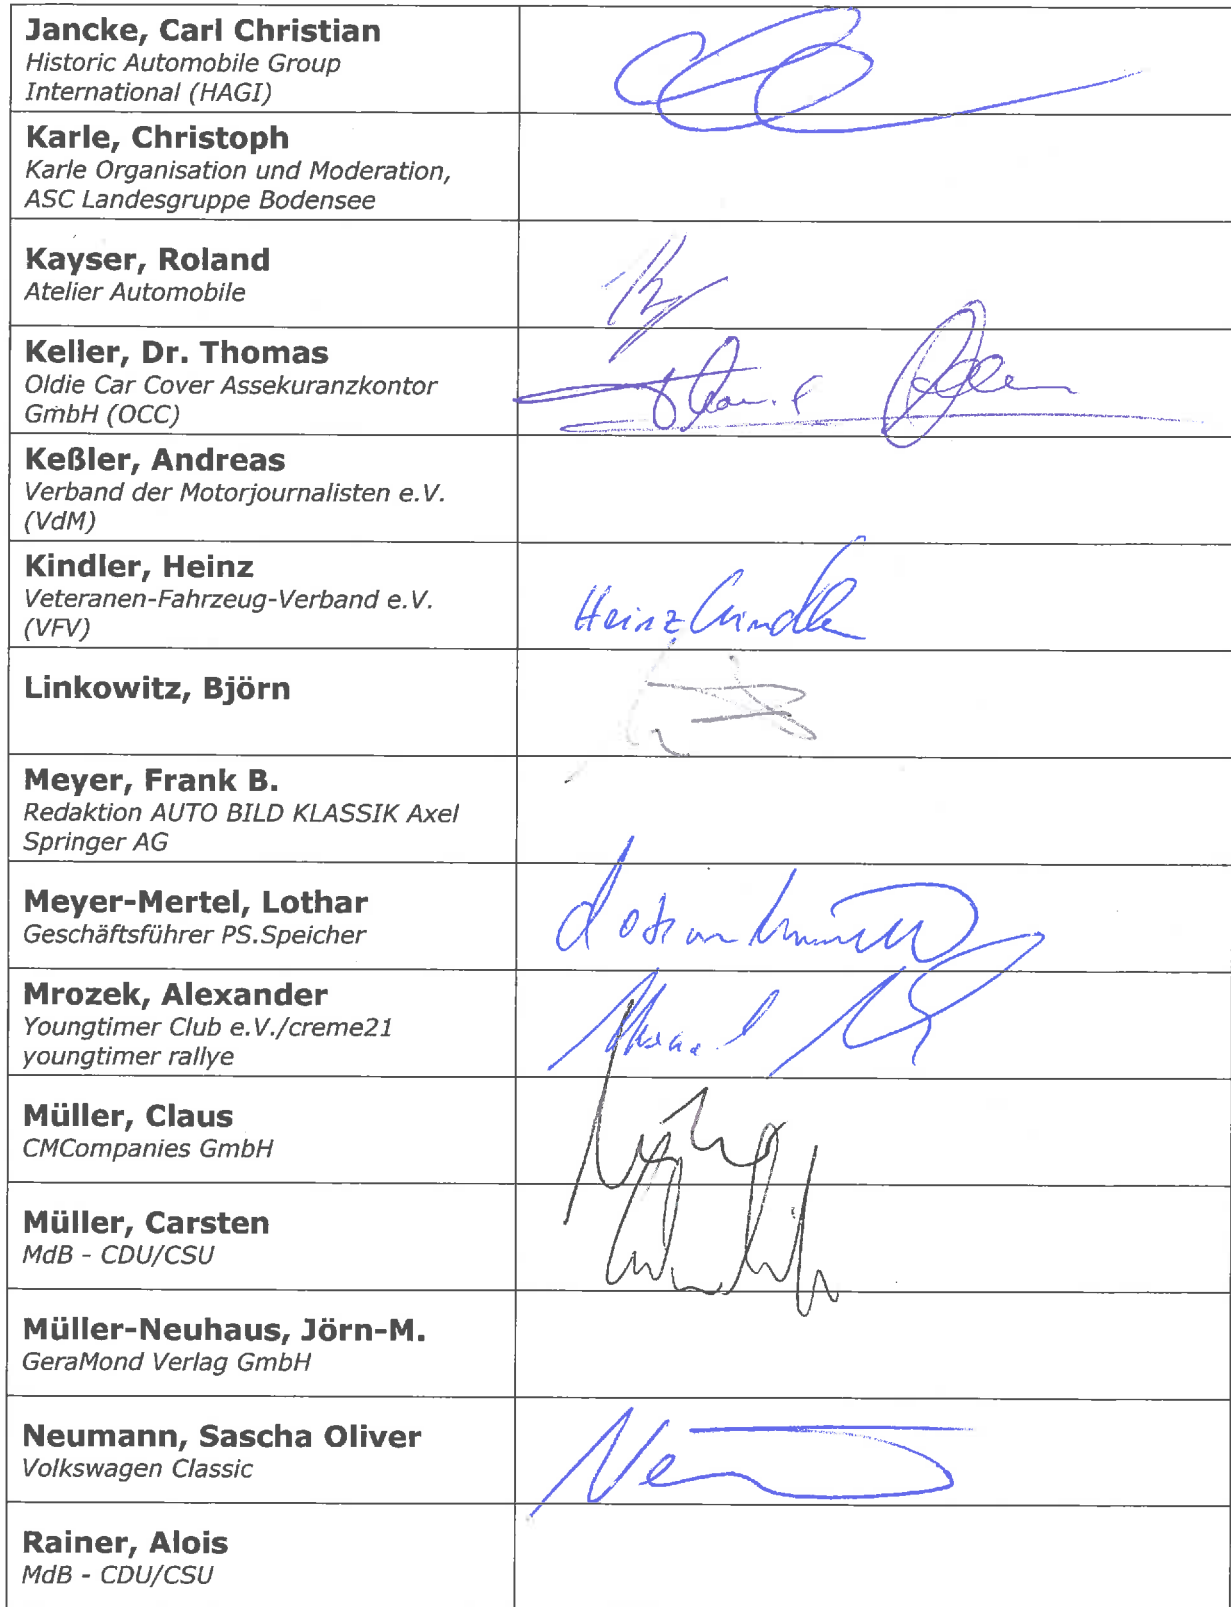 Jancke, Carl Christian
Historic Automobile Group
International (HAGI)
Karle, Christoph
Karle Organisation und Moderation,
ASC Landesgruppe Bodensee
Kayser, Roland
Atelier Automobile
Keller, Dr. Thomas
Oldie Car Cover Assekuranzkontor
GmbH (OCC)
Keßler, Andreas
Verband der Motorjournalisten e.V.
(VdM)
Kindler, Heinz
Veteranen-Fahrzeug-Verband e.V.
(VFV)
Heinz Kindler
Linkowitz, Björn
Meyer, Frank B.
Redaktion AUTO BILD KLASSIK Axel
Springer AG
Meyer-Mertel, Lothar
Geschäftsführer PS.Speicher
Mrozek, Alexander
Youngtimer Club e.V./creme21
youngtimer rallye
Müller, Claus
CMCompanies GmbH
Müller, Carsten
MdB - CDU/CSU
Müller-Neuhaus, Jörn-M.
GeraMond Verlag GmbH
Neumann, Sascha Oliver
Volkswagen Classic
Rainer, Alois
MdB - CDU/CSU